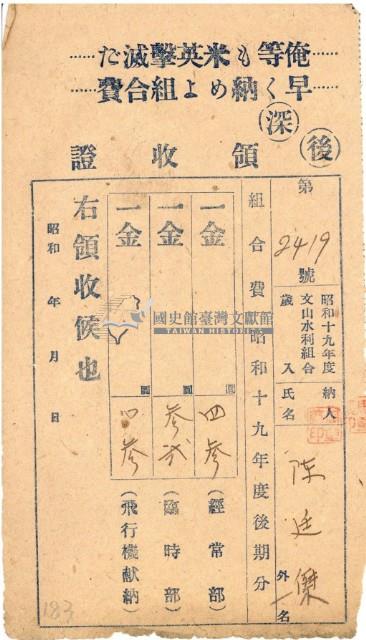 俺等も米英撃滅だ……
早く納めよ組合費……
後
深
領收證
第2419號
昭和十九年度
文山水利組合
歲入
納人
氏名
陳廷傑
外一名
組合費昭和十九年度後期分
一金
圓
四参
(經常部)
一金
圓
参弐
(臨時部)
一金
圓
(飛行機献納)
右領收候也
昭和 年 月 日
國史館臺灣文獻館
TAIWAN HISTORICA
183